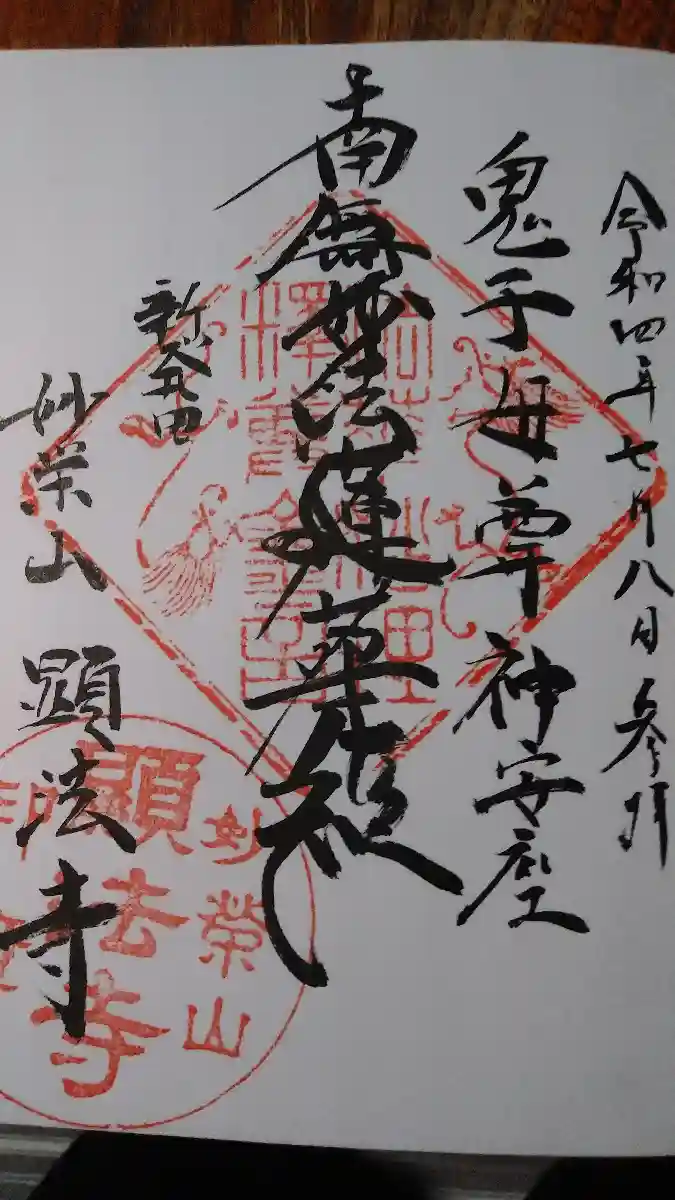 令和四年七月八日参拝
鬼子母尊神安座
南無妙法蓮華経
新発田
妙栄山 顕法寺
妙栄山
顕法寺